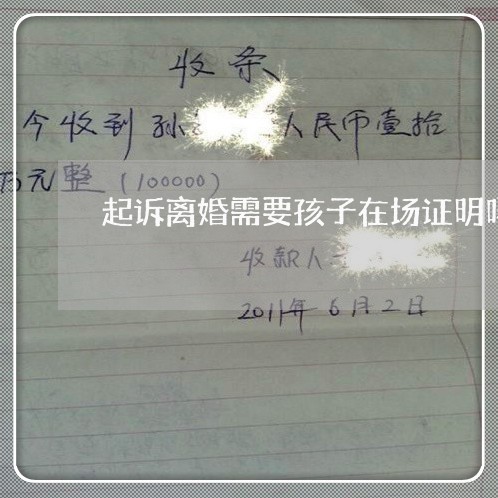 收条
今收到孙 人民币壹拾
万元整(100000)
起诉离婚需要孩子在场证明
收款人
2011年6月2日